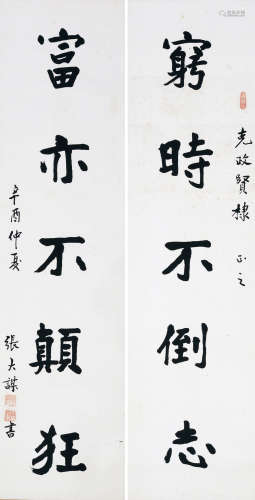 窮時不倒志
克政賢棣 正之
富亦不顛狂
辛酉仲夏
張大謀書